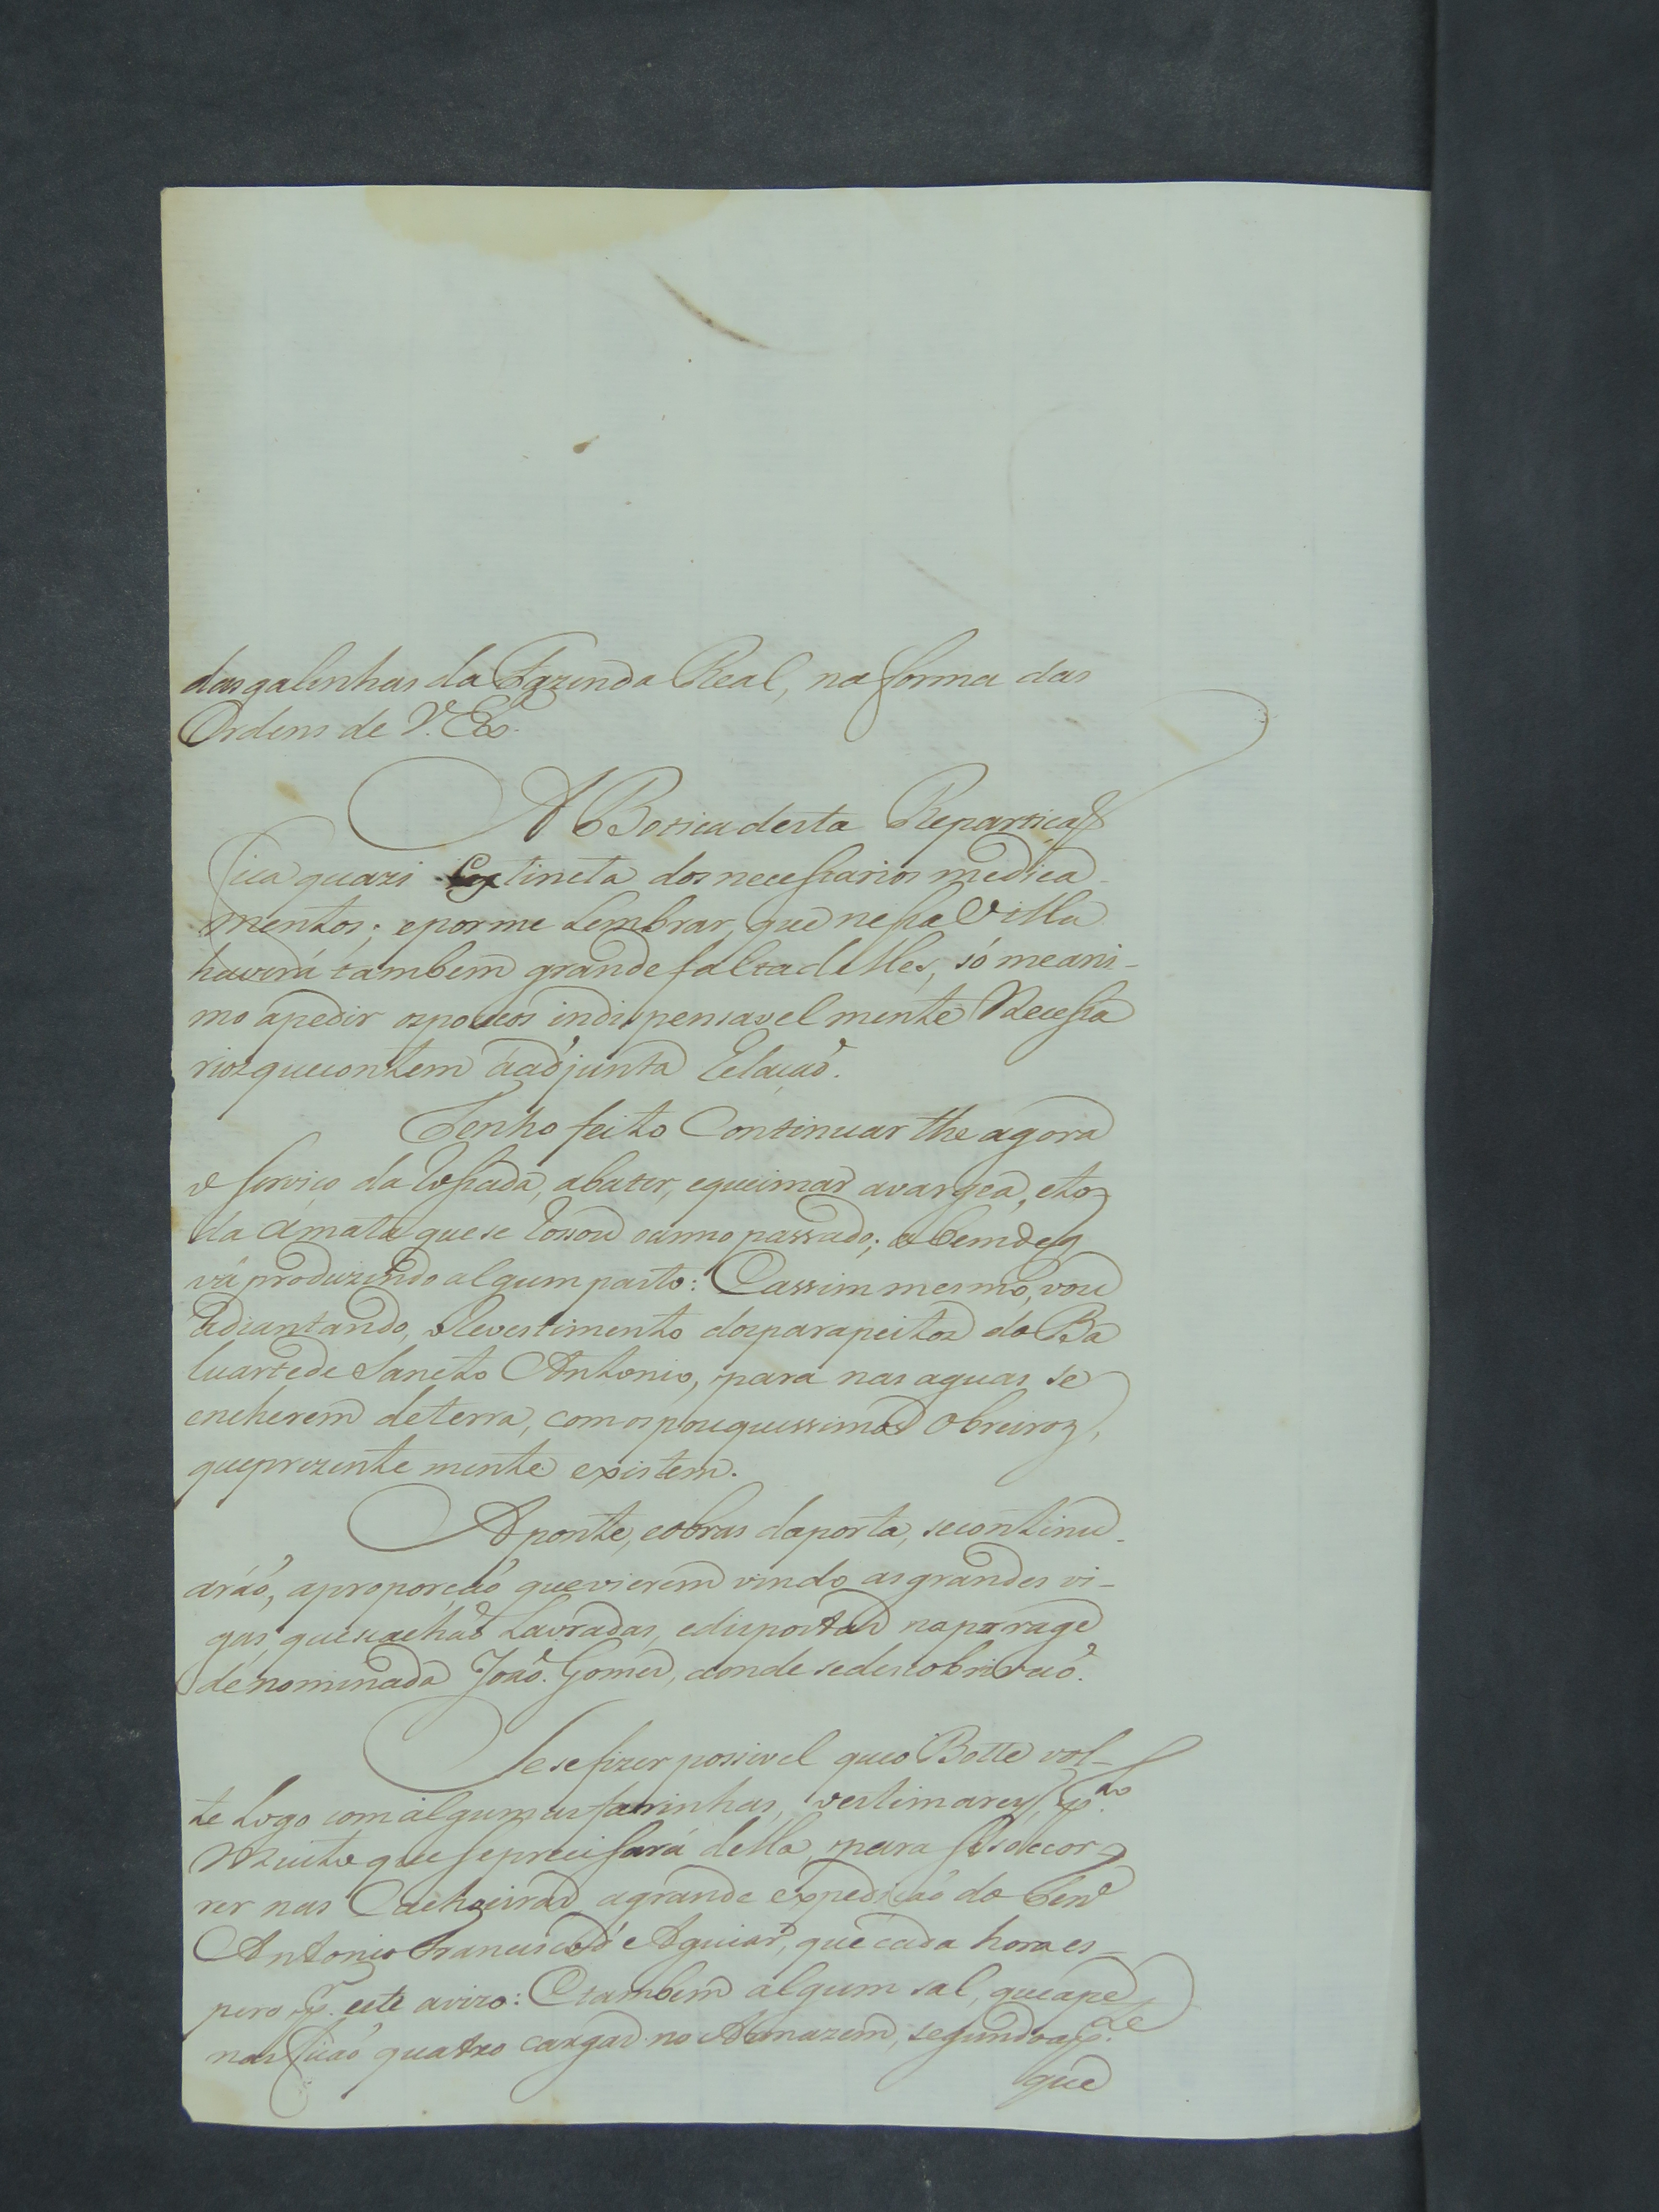 das galinhas da Fazenda Real, na forma das
Ordens de V. Exª.
A Botica desta Repartiçaõ
fica quazi Extincta dos necessarios medica-
mentos; e por me Lembrar, que nessa Villa
haverá tambem grande falta delles, só me ani-
mo apedir os poucos indispensavel mente Necessa
rios que contem áadjunta Relaçaõ.
Tenho feito Continuar the agora
o serviço da Rossada, abater, equeimar avargea, eto
da ámata que se Rossou oanno passado; a bem de q
vá produzindo algum pasto: E assim mesmo, vou
adiantando, o Revestimento dos parapeitos do Ba
luarte de Sancto Antonio, para nas aguas se
encherem de terra, com os pouquissimos Obreiros,
que prezente mente existem.
A ponte, eobras daporta, secontinu-
aráõ, aproporçaõ que vierem vindo as grandes vi-
gas, que seachaõ Lavradas, edispostas naparage
denominada Joaõ Gomes, aonde sedescobriraõ.
Se se fizer possivel que o Botte vol-
te Logo com algumas farinhas, oestimarey, p.lo
Muito que se precisará della para se soccor-
rer nas Cachoeiras agrande expediçaõ do Ten.e
Antonio Francisco d'Aguiar, que cada hora es-
pero p. este avizo: E tambem algum sal, que ape
nas ficaõ quatro cargas no Armazem, segundo a p.te
que